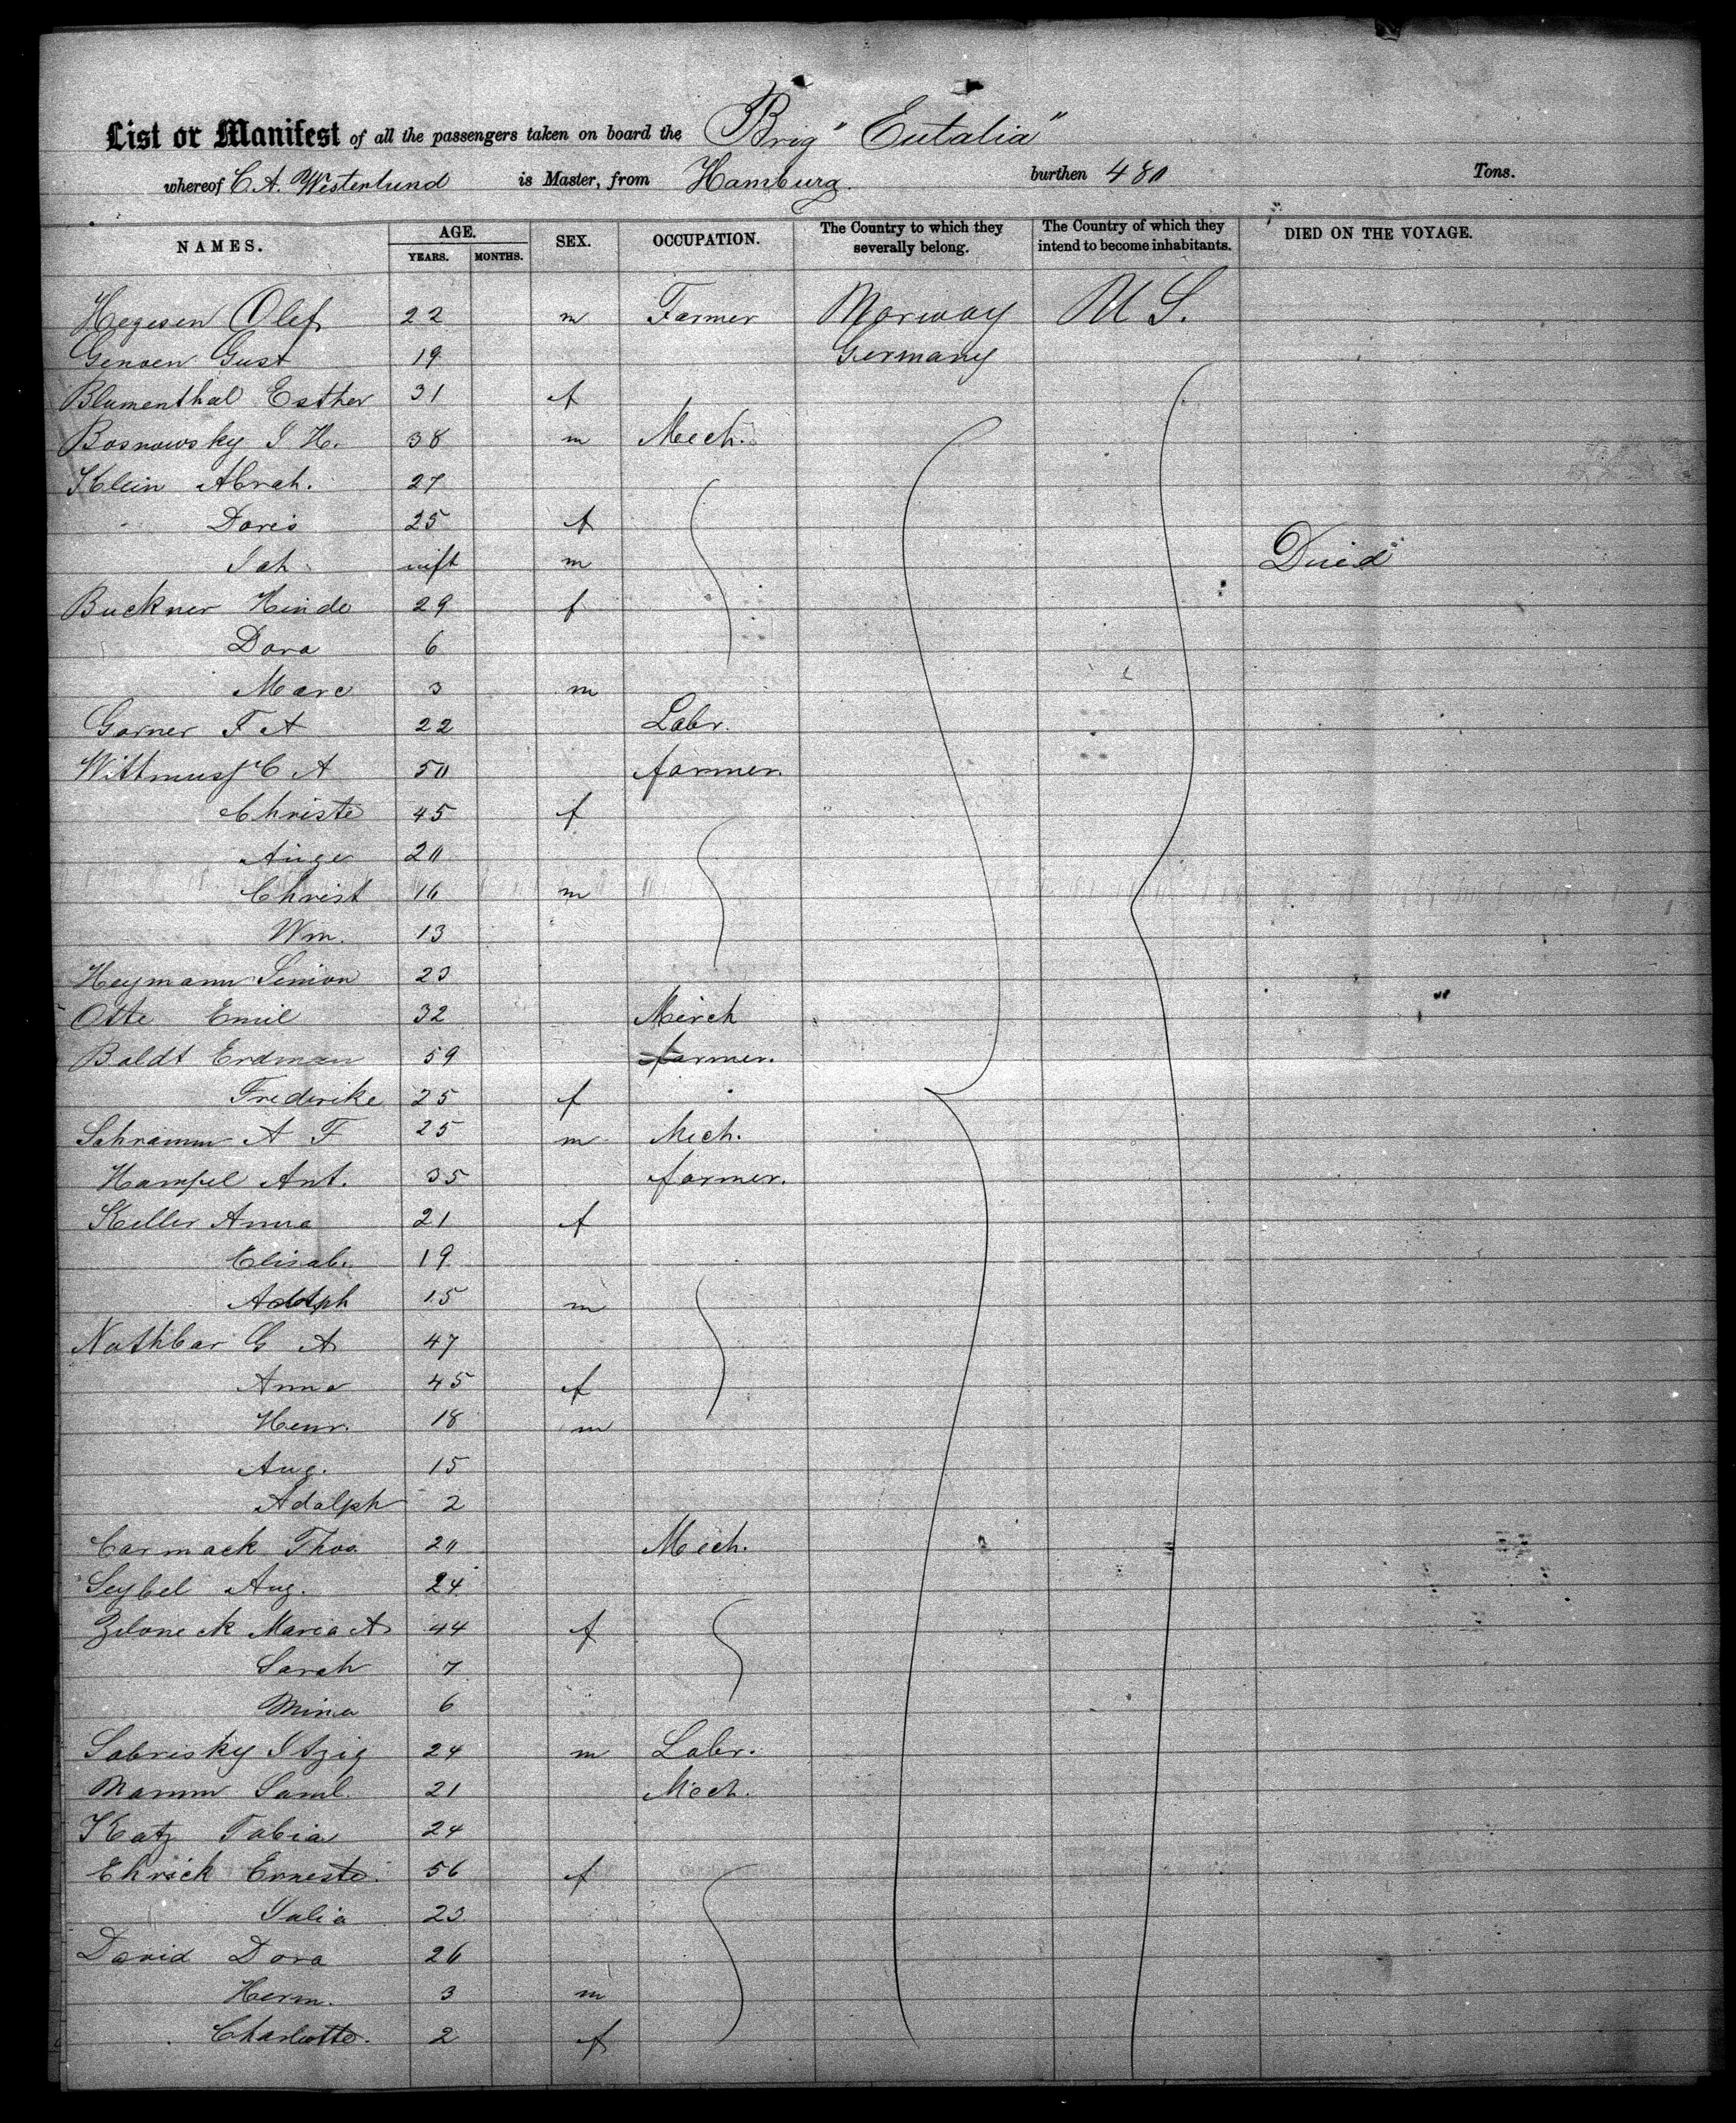 List or Manifest of all the passengers taken on board the Brig "Eutalia"
whereof C. A. Westerlund is Master, from Hamburg. burthen 480 Tons.
NAMES. AGE. YEARS. MONTHS. SEX. OCCUPATION. The Country to which they severally belong. The Country of which they intend to become inhabitants. DIED ON THE VOYAGE.
Hegesen Olef 22 m Farmer Norway U S.
Gensen Gust 19 Germany
Blumenthal Esther 31 f
Bosnowsky I H. 38 m Mech.
Klein Abrah. 27
Doris 25 f
Jah inft m Died
Buckner Hinde 29 f
Dora 6
Marc 3 m
Garner F A 22 Labr.
Wittmuss C A 50 farmer.
Christe 45 f
Auge 20
Christ 16 m
Wm. 13
Heymann Simon 23
Otte Emil 32 Merch
Boldt Erdman 59 farmer.
Frederike 25 f
Schramm A F 25 m Mech.
Hampel Ant. 35 farmer.
Keller Anna 21 f
Elisab. 19
Adolph 15 m
Nathbar G A 47
Anna 45 f
Henr. 18 m
Aug. 15
Adolph 2
Carmack Thos 20 Mech.
Seybel Aug. 24
Zeloneck Maria A 44 f
Sarah 7
Mina 6
Sabrisky Itzig 24 m Labr.
Mamm Saml. 21 Mech.
Katz Tobia 24
Ehrick Erneste 56 f
Julia 23
David Dora 26
Herm. 3 m
Charlotte. 2 f